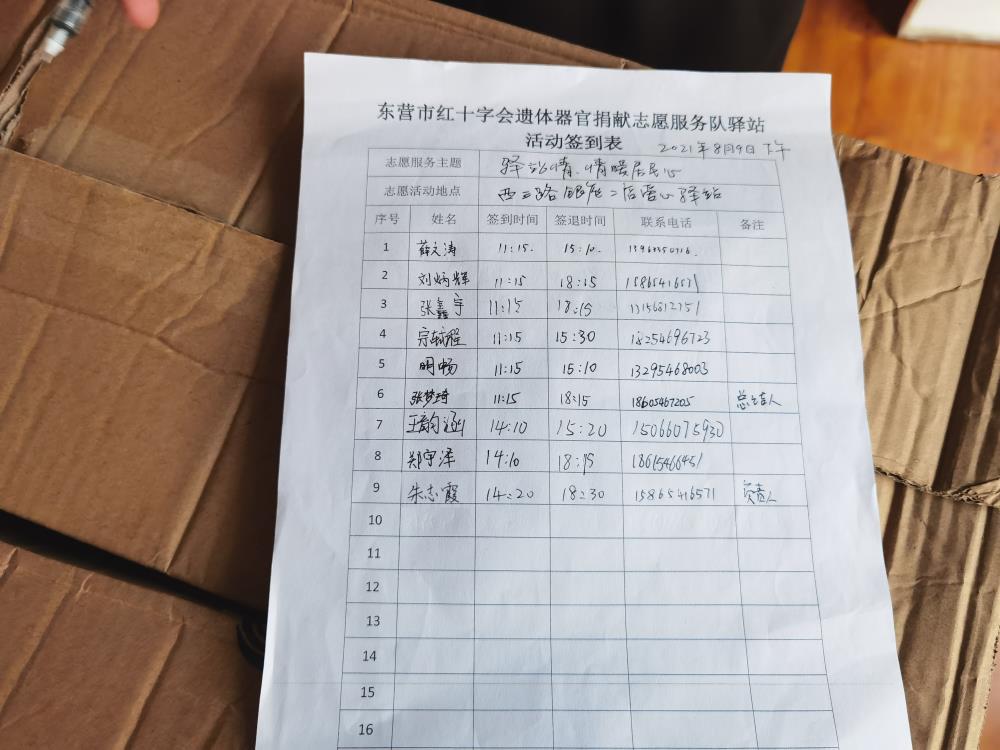 东营市红十字会遗体器官捐献志愿服务队驿站
活动签到表 2021年8月9日 下午
志愿服务主题 驿站情、情暖居民心
志愿活动地点 西三路 二店爱心驿站
序号 姓名 签到时间 签退时间 联系电话 备注
1 薛文涛 11:15. 15:10.
2 刘炳辉 11:15 18:15
3 张鑫宇 11:15 18:15
4 宗毓程 11:15 15:30 18254696723
5 明畅 11:15 15:10 13295468003
6 张梦琦 11:15 18:15 18605467205
7 王韵涵 14:10 15:20 15066075930
8 郑宇泽 14:10 18:15
9 朱志霞 14:20 18:30 15865416571 负责人
10
11
12
13
14
15
16